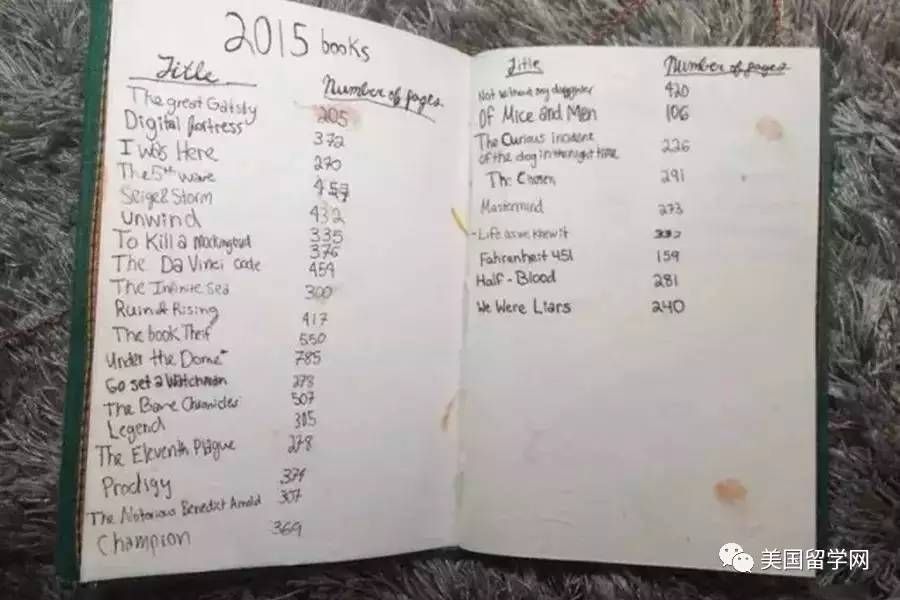 2015 books
Title Number of pages
The great Gatsby 205
Digital fortress 372
I was Here 270
The 5th wave
Seige & Storm 432
Unwind 335
To Kill a Mockingbird 376
The Da Vinci Code 454
The Infinite Sea 300
Ruin & Rising 417
The book Theif 550
Under the Dome 785
Go set a Watchman 278
The Bane Chronicles 507
Legend 305
The Eleventh Plague 278
Prodigy 374
The Notorious Benedict Arnold 307
Champion 369
Title Number of pages
Not without my daughter 420
Of Mice and Men 106
The Curious incident
of the dog in the night time 226
The Chosen 291
Mastermind 273
- Life as we knew it 337
Fahrenheit 451 159
Half-Blood 281
We Were Liars 240
美国留学网